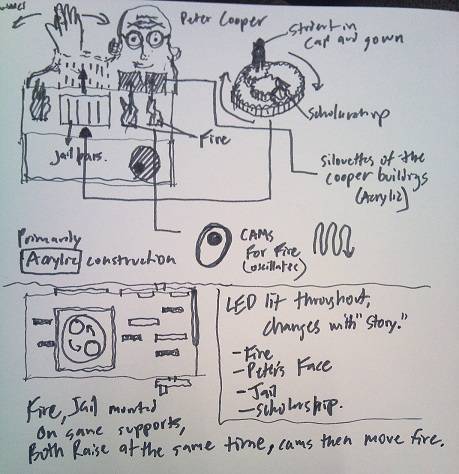 Peter Cooper
Student in
cap and gown
scholarship
Fire
jail bars.
Silouettes of the
cooper buildings
(Acrylic)
Primarily
Acrylic construction
CAMS
For Fire
(oscillates)
LED lit throughout,
changes with "story."
- Fire
- Peter's Face
- Jail
- Scholarship.
Fire, Jail mounted
On same supports,
Both Raise at the same time, cams then move fire.